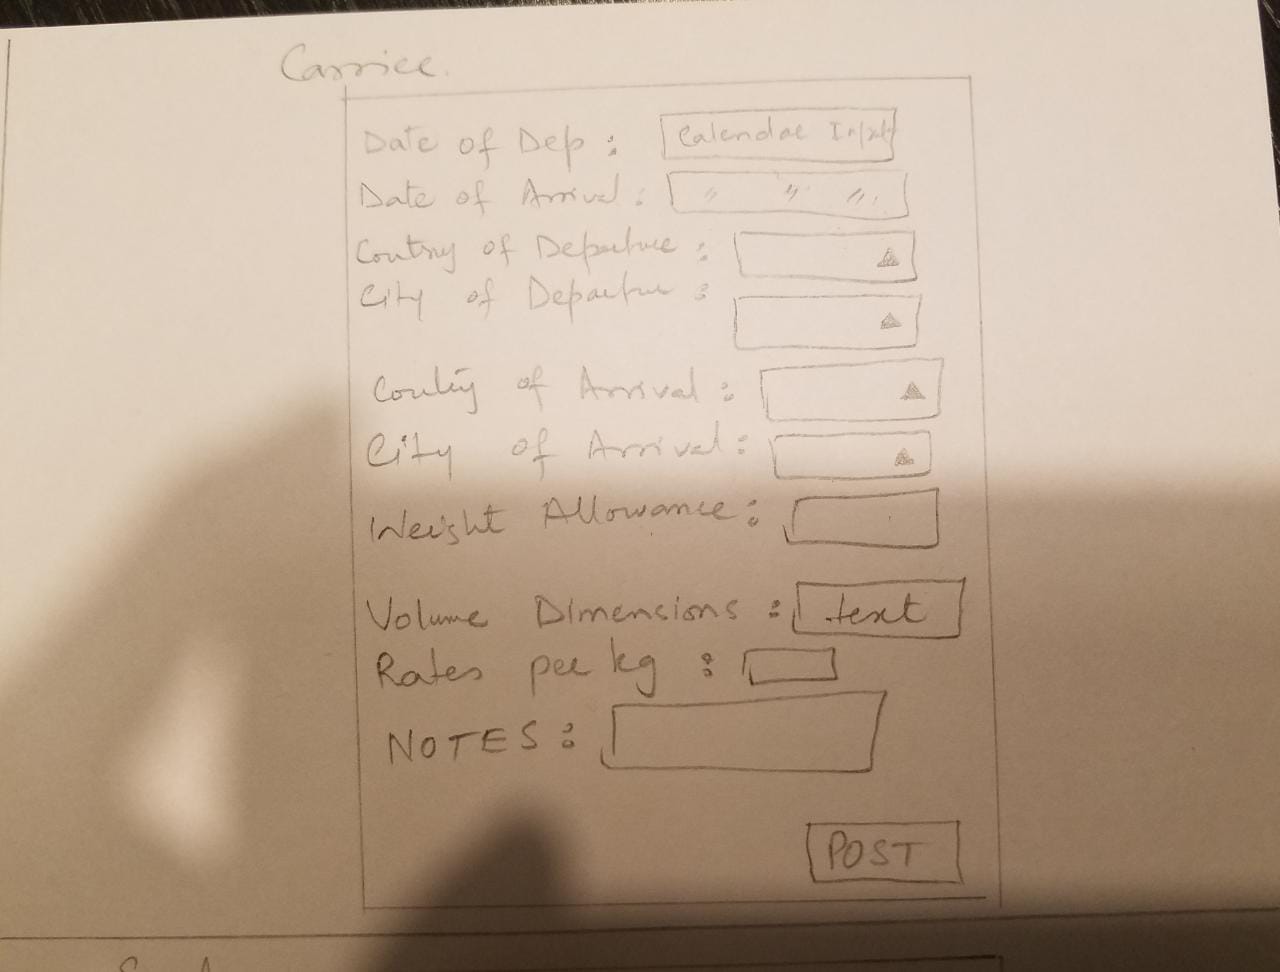 Carrier.
Date of Dep : Calendar Input
Date of Arrival : " " "
Country of Departure :
City of Departure :
Country of Arrival :
City of Arrival :
Weight Allowance :
Volume Dimensions : text
Rates per kg :
NOTES :
POST